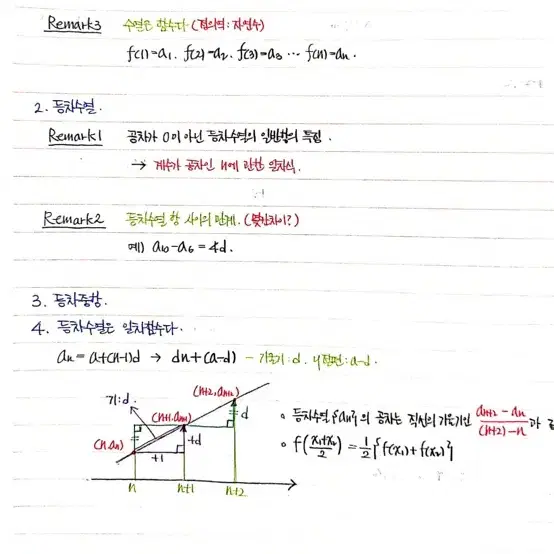 Remark3 수열은 함수다 (정의역 : 자연수)
f(1)=a₁. f(2)=a₂. f(3)=a₃ ⋯ f(n)=aₙ.
2. 등차수열.
Remark1 공차가 0이 아닌 등차수열의 일반항의 특징.
→ 계수가 공차인 n에 관한 일차식.
Remark2 등차수열 항 사이의 관계. (몇칸차이?)
예) a₁₀-a₆ = 4d.
3. 등차중항.
4. 등차수열은 일차함수다.
aₙ = a+(n-1)d → dn+(a-d) - 기울기:d. y절편: a-d.
(n+2, aₙ₊₂)
기:d.
(n+1, aₙ₊₁)
d
(n, aₙ)
+d
+1
n n+1 n+2
• 등차수열 {aₙ}의 공차는 직선의 기울기인 (aₙ₊₂ - aₙ)/((n+2)-n) 과
• f((x₁+x₂)/2) = 1/2{f(x₁)+f(x₂)}